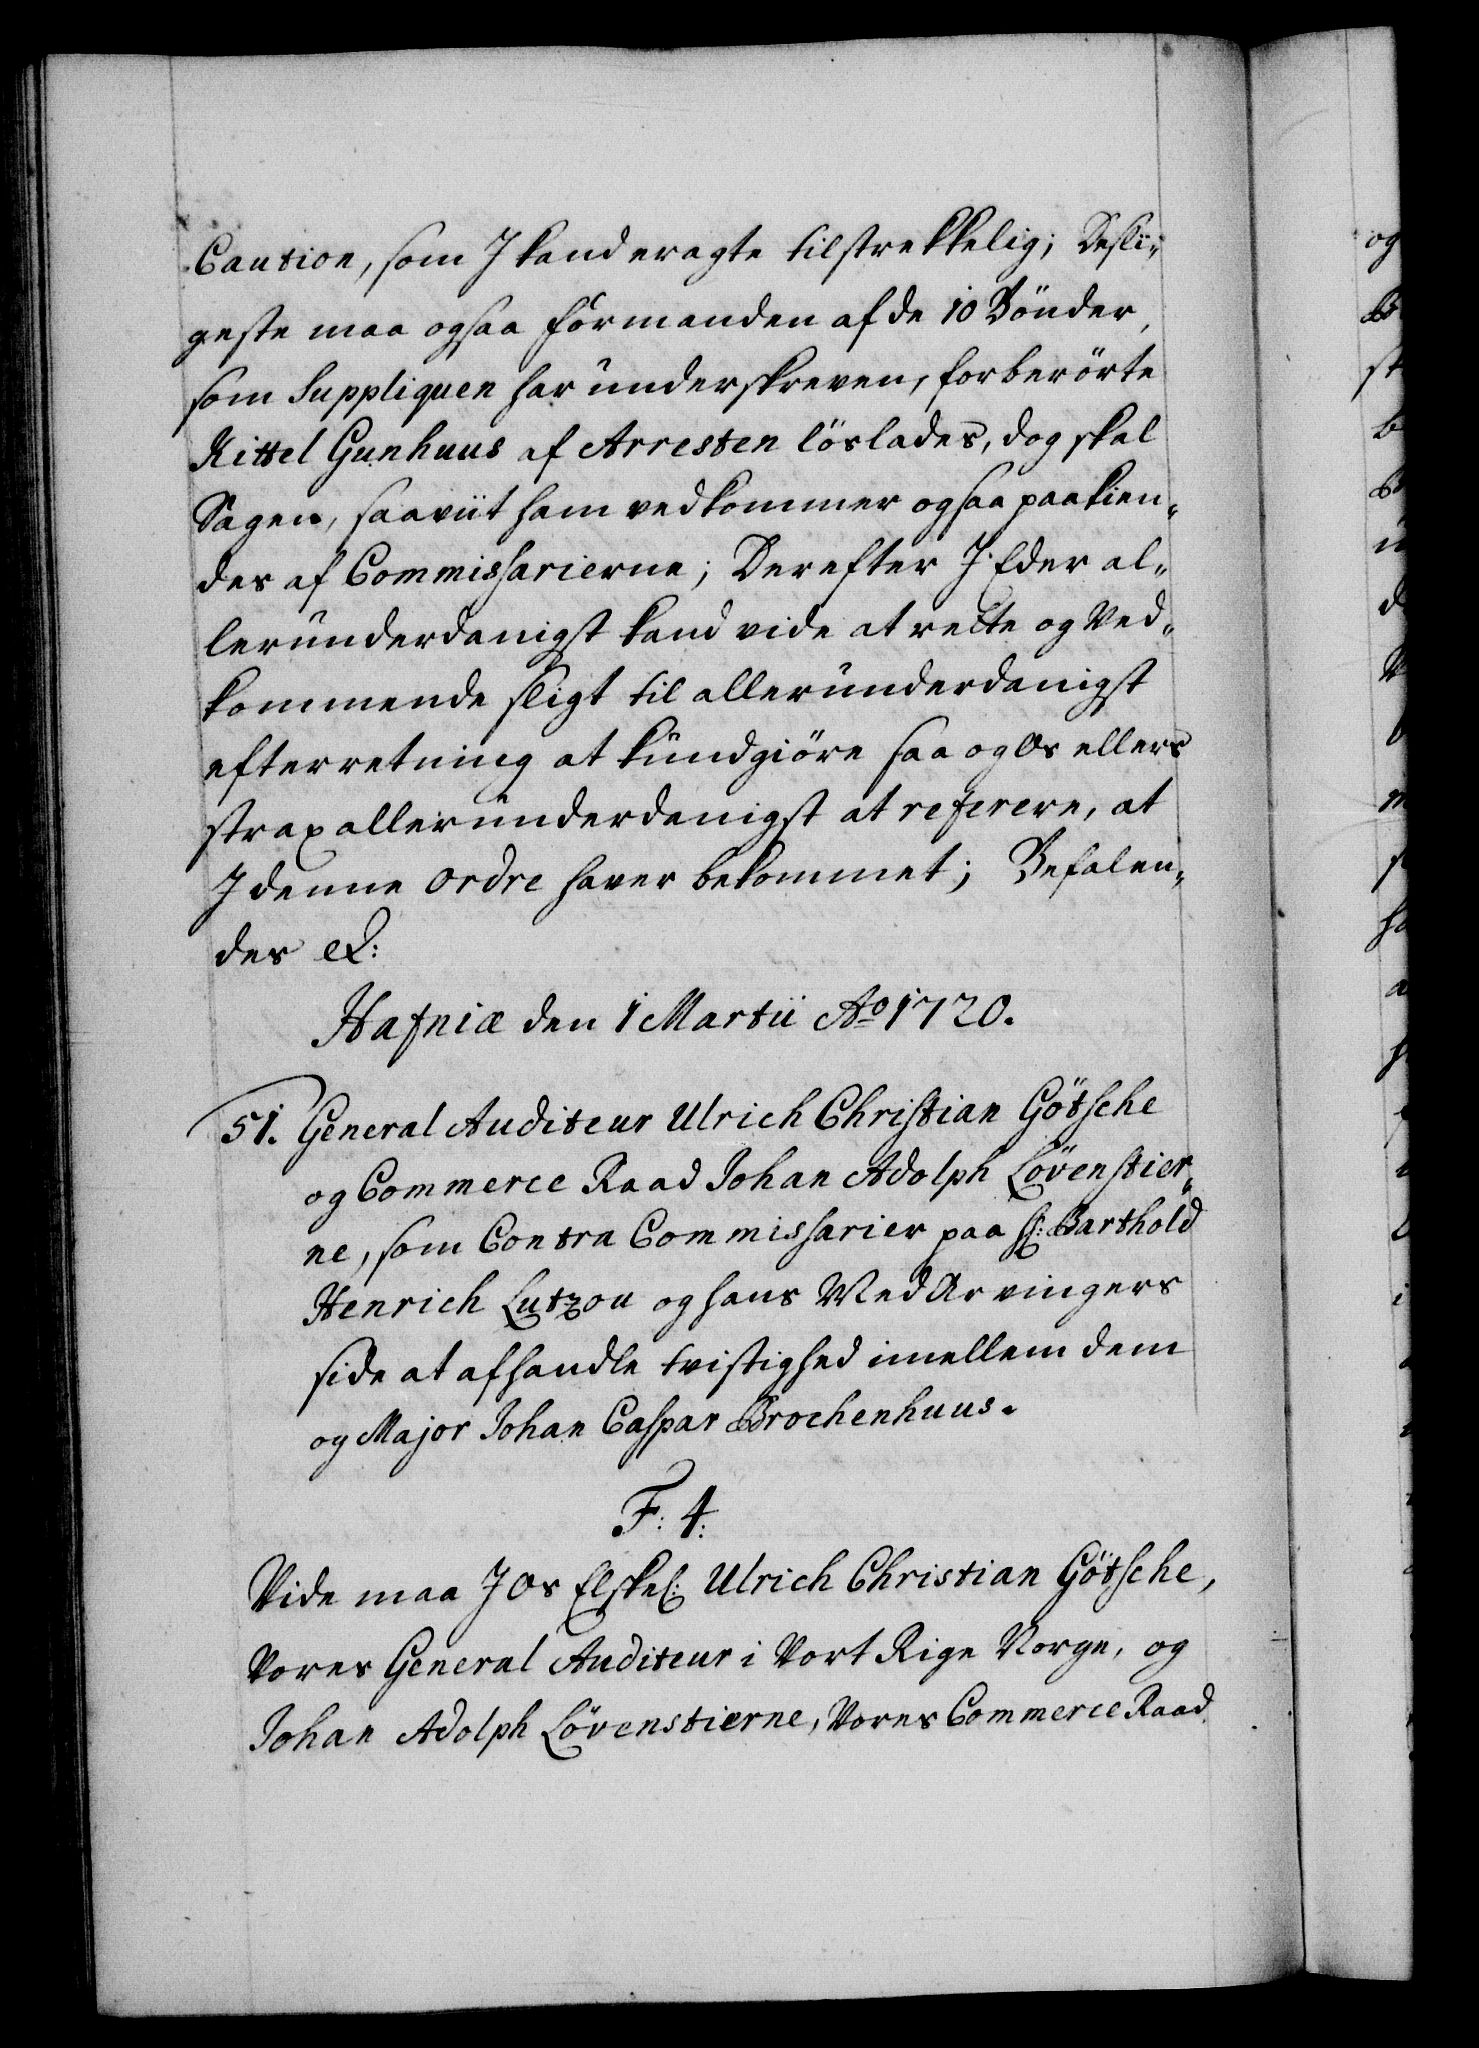 Caution, som J kand eragte tilstrekkelig; Desli„
geste maa ogsaa formanden af de 10 Bönder,
som Suppliquen har underskreven, forberörte
Kittel Gunhuus af Arresten löslades, dog skal
Sagen, saaviit ham vedkommer ogsaa paakien„
des af Commissarierne; Derefter J Eder al„
lerunderdanigst kand vide at rette og Ved„
kommende sligt til allerunderdanigst
efterretning at kundgiöre saa og Os ellers
strax allerunderdanigst at referere, at
J denne ordre haver bekommet; Befalen„
des etc:
Hafniæ den 1 Martii Ao 1720.
51. General Auditeur Ulrich Christian Götsche
og Commerce Raad Johan Adolph Lövenstier„
ne, som Contra Commissarier paa Hr: Barthold
Henrich Lutzou og hans Med Arvingers
side at afhandle tvistighed imellem dem
og Major Johan Caspar Brochenhuus.
F: 4:
Vide maa J Os Elskel: Ulrich Christian Götsche,
Vores General Auditeur i Vort Rige Norge, og
Johan Adolph Lövenstierne, Vores Commerce Raad